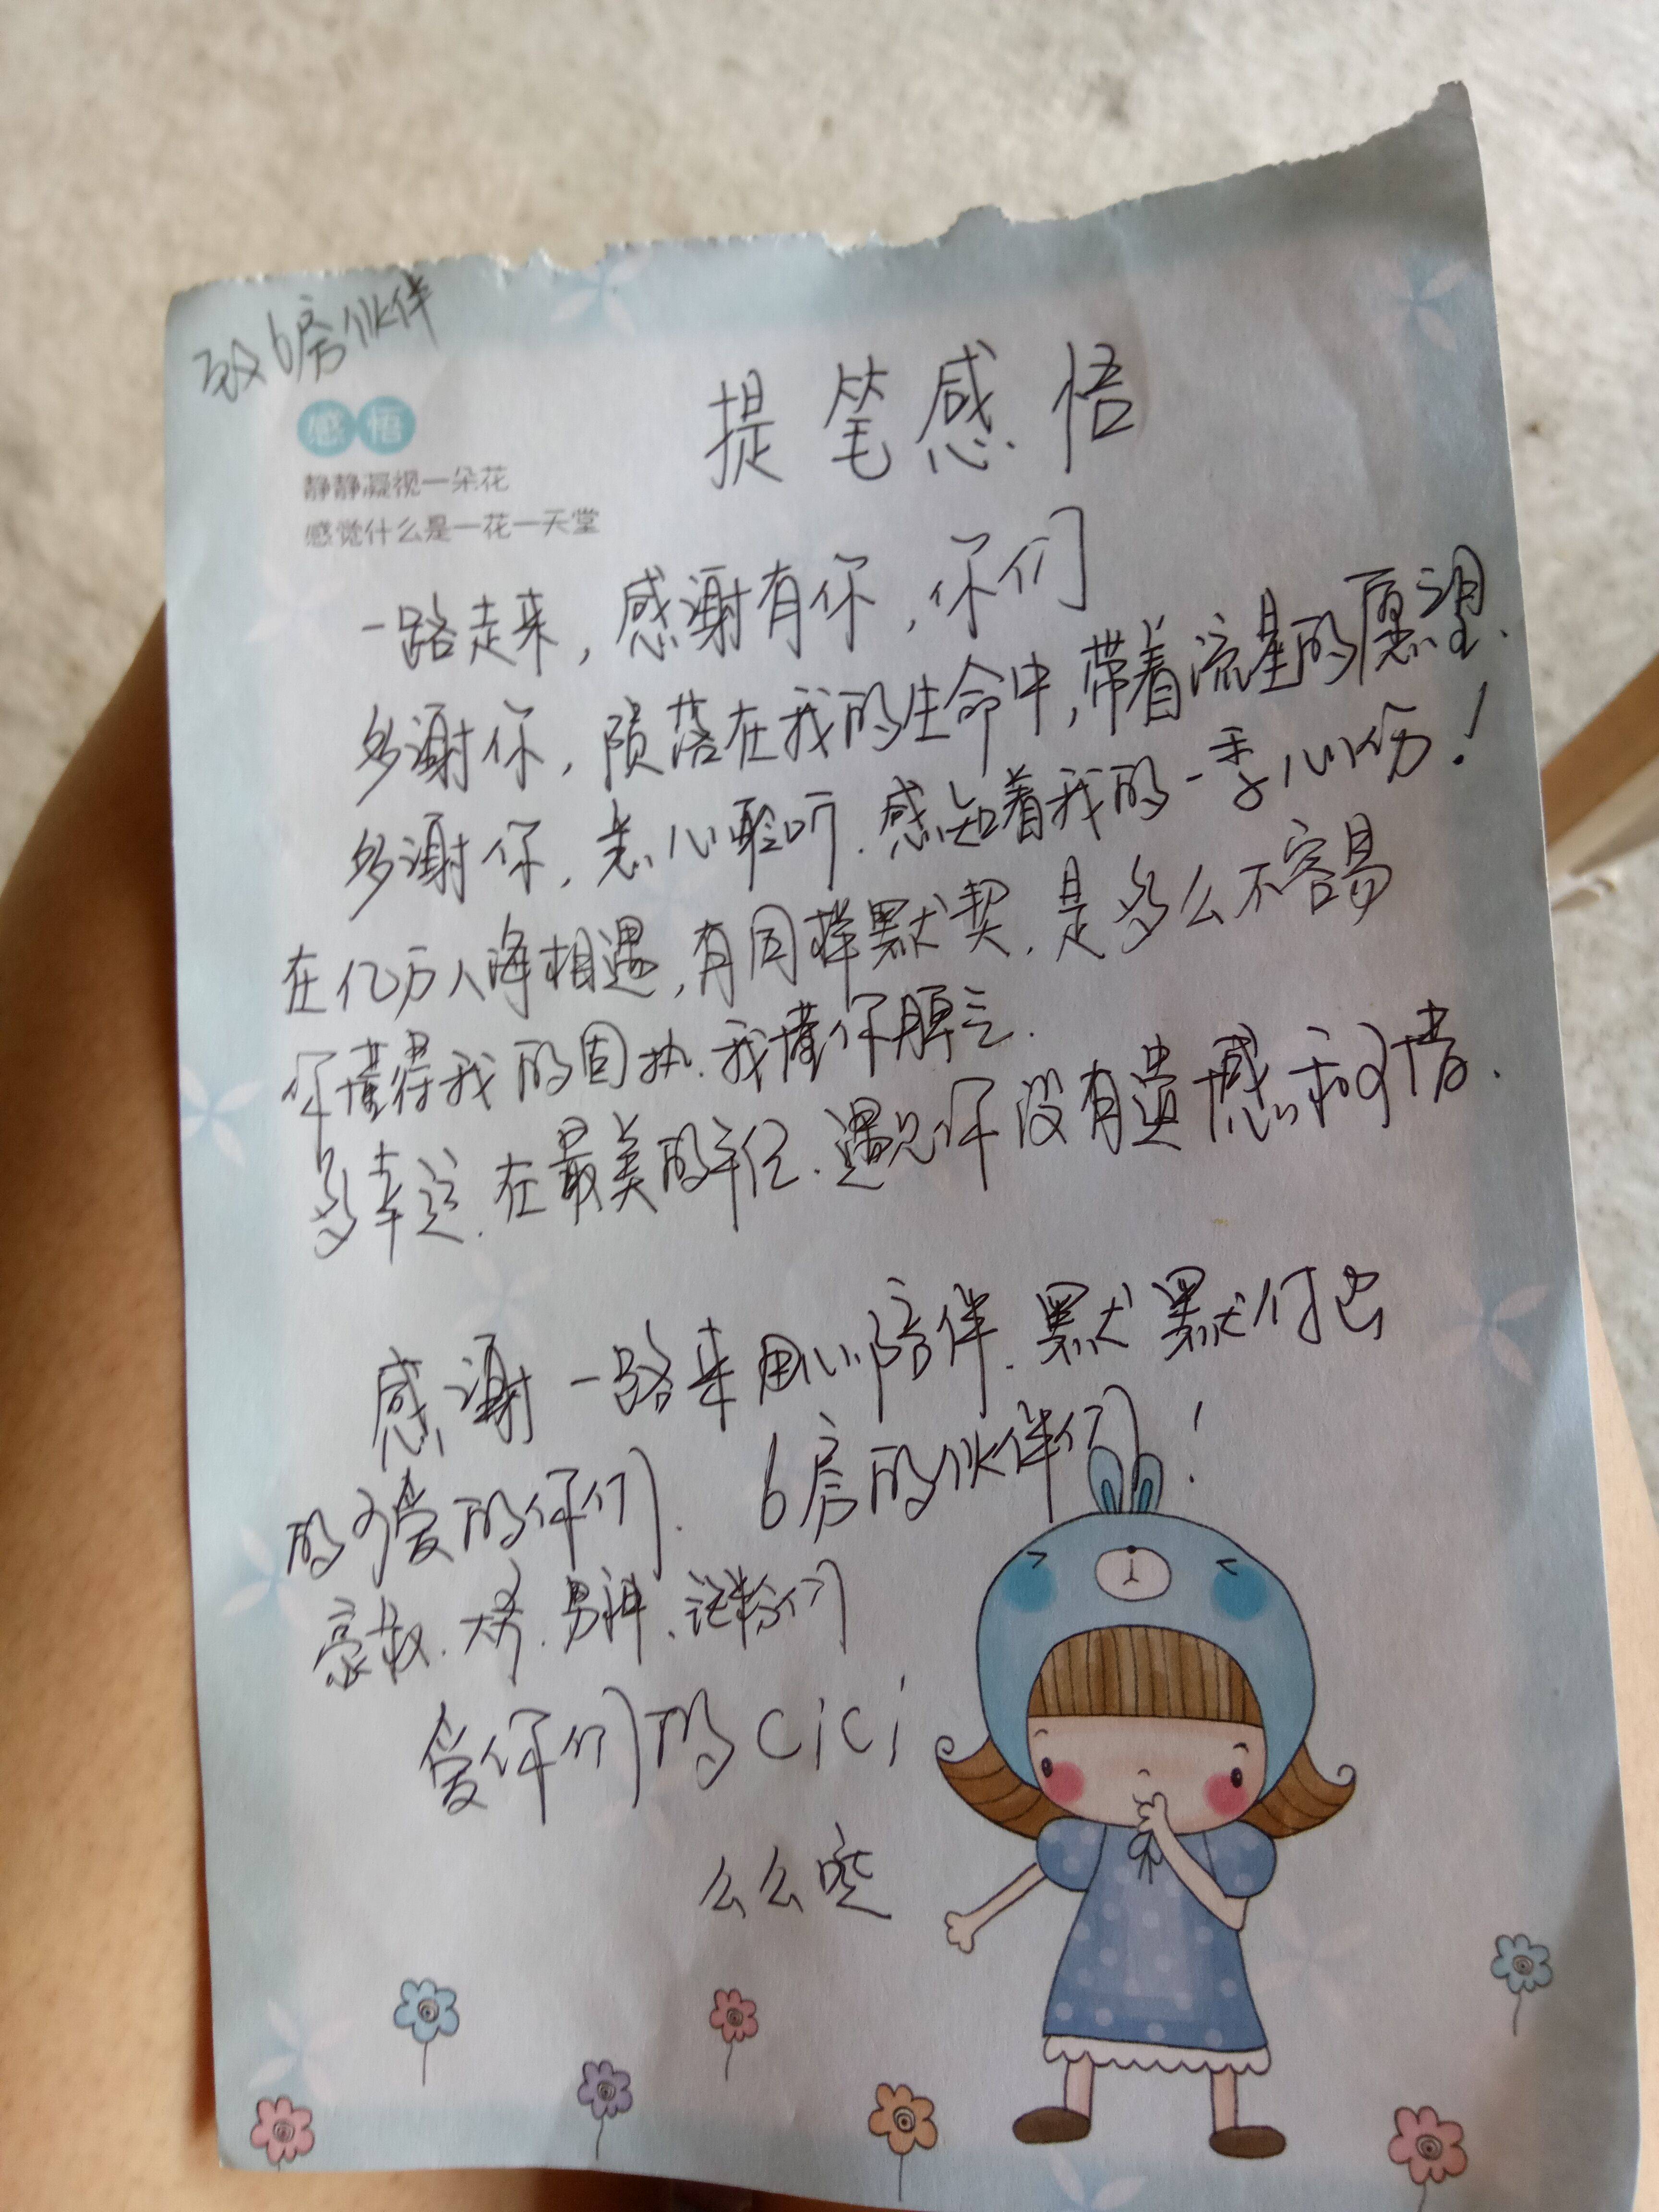 致6房伙伴
感悟
静静凝视一朵花
感觉什么是一花一天堂
提笔感悟
一路走来，感谢有你，你们
多谢你，陨落在我的生命中，带着流星的愿望.
多谢你，悉心聆听.感知着我的一季心伤！
在亿万人海相遇，有同样默契.是多么不容易
你懂得我的固执.我懂你脾气.
多幸运.在最美的年纪.遇见你没有遗憾和可惜.
感谢一路来用心陪伴.默默付出
的可爱的你们. 6房的伙伴们！
豪叔.大秀.男神、谜粉们
爱你们的cici
么么哒